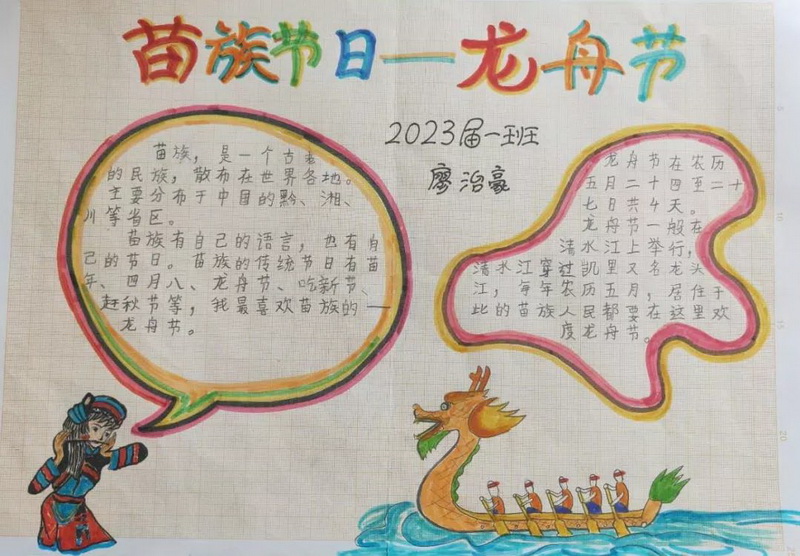 苗族节日—龙舟节
2023届一班
廖治豪
苗族，是一个古老
的民族，散布在世界各地。
主要分布于中国的黔、湘、
川等省区。
苗族有自己的语言，也有自
己的节日。苗族的传统节日有苗
年、四月八、龙舟节、吃新节、
赶秋节等，我最喜欢苗族的—
龙舟节。
龙舟节在农历
五月二十四至二十
七日共4天。
龙舟节一般在
清水江上举行，
清水江穿过凯里又名龙头
江，每年农历五月，居住于
此的苗族人民都要在这里欢
度龙舟节。